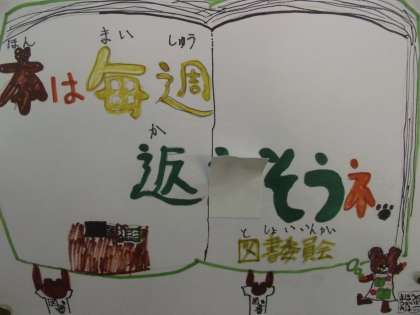 ほん まい しゅう
本は毎週
か
返そうネ
と しょ い いん かい
図書委員会